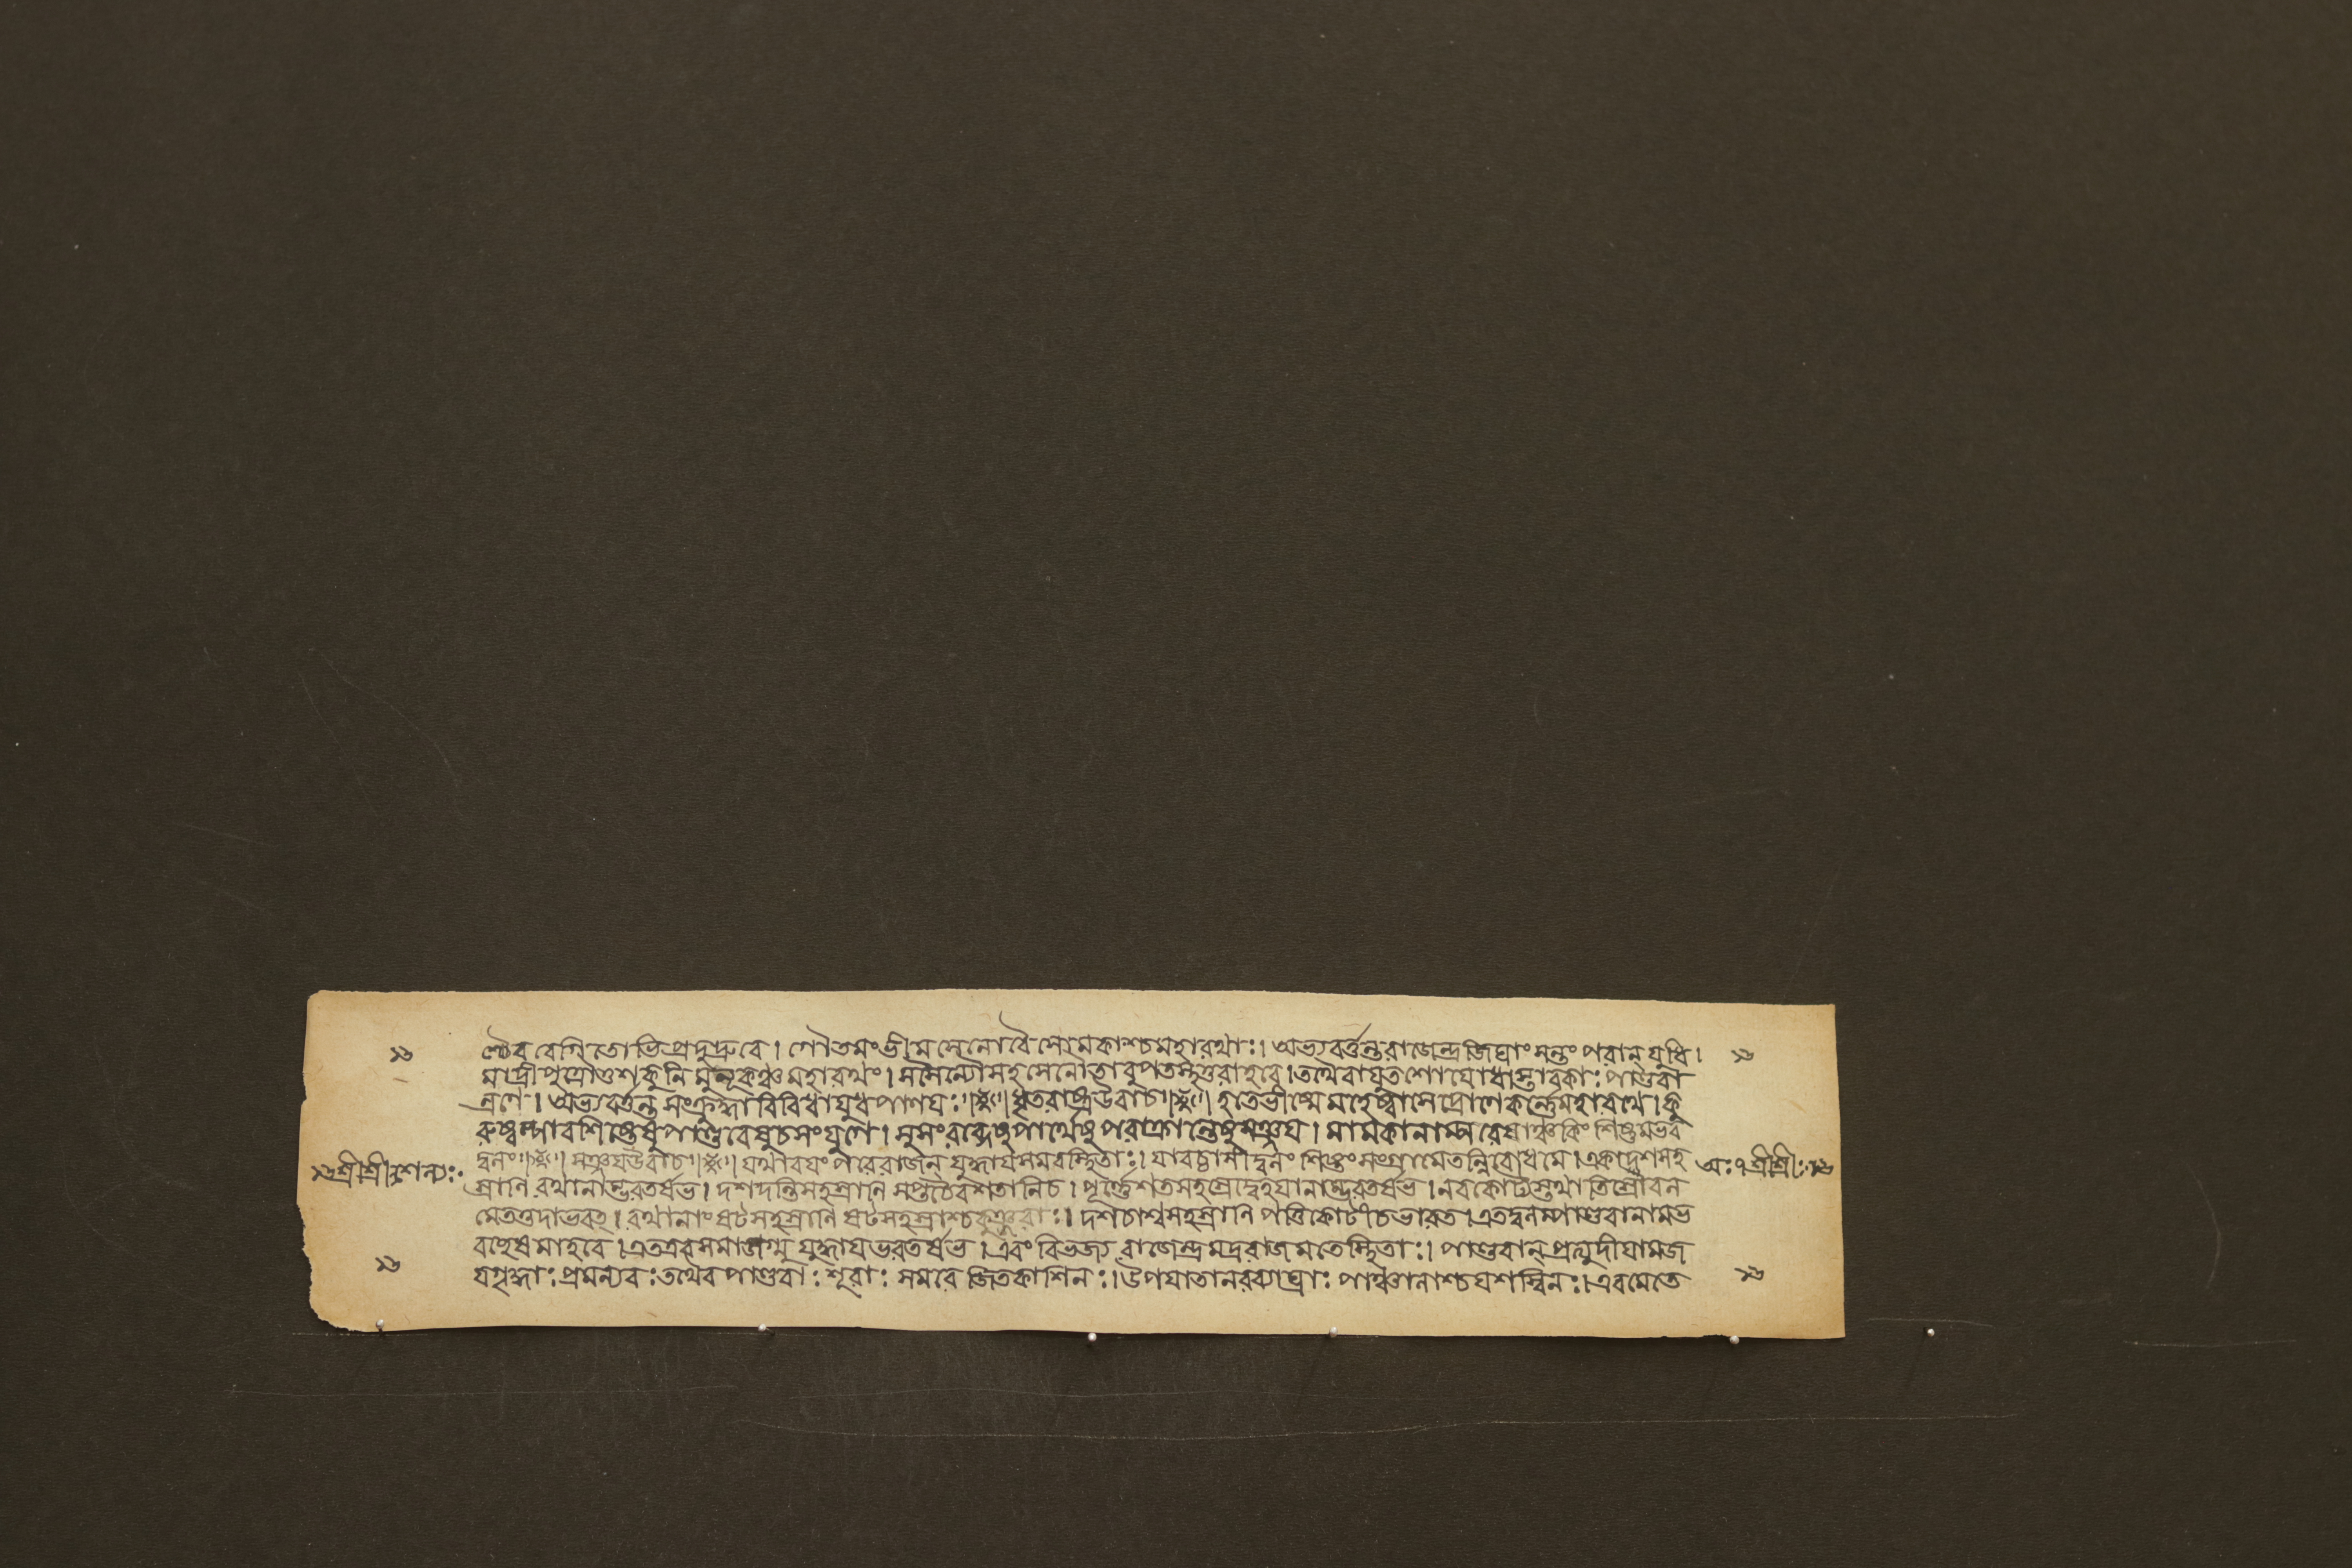 ণ্চৈব বেগিতোভিপ্রদুদ্রুবে। গৌতমংভীমসেনোবৈসোমকাশ্চমহারথাঃ। অভ্যবর্ত্তন্তরাজেন্দ্রজিঘাংসন্তঃ পরান্ যুধি।
মাদ্রীপুত্রৌতুশকুনি মুলূকঞ্চমহারথং। সসৈন্যৌসহসেনৌতাবুপতস্থতুরাহবে। তথৈবাযুতশোযোধাস্তাবকাঃ পাণ্ডবা
ন্রণে। অভ্যবর্ত্তন্ত সংক্রুদ্ধা বিবিধাযুধপাণযঃ।ধৃতরাষ্ট্রউবাচ। হতেভীষ্মে মহেষ্বাসেদ্রোণেকর্ন্নেমহারথে। কু
রুষ্বল্পাবশিষ্টেষুপাণ্ডবেষুচসংযুগে। সুসংরব্ধেষুপার্থেষুপরাক্রান্তেষুসঞ্জয। মামকানাম্পরেষাঞ্চকিং শিষ্টমভব
দ্বলং। সঞ্জযউবাচ। যথাবযং পরেরাজন্ যুদ্ধাযসমবস্থিতাঃ। যাবচ্চাসীদ্বলং শিষ্টং সংগ্রামেতন্নিবোধমে। একাদশসহ
স্রানি রথানাম্ভরতর্ষভ। দশদন্তিসহস্রানি সপ্তচৈবশতানিচ। পূর্ন্নেশতসহস্রেদ্বেহযানাম্ভরতর্ষভ। নবকোট্যস্তথা তিস্রোবল
মেতত্তদাভবৎ। রথানাং ষট্সহস্রানি ষট্সহস্রাশ্চকুঞ্জরাঃ। দশচাশ্বসহস্রানি পত্তিকোটীচভারত। এতদ্বলম্পাণ্ডবানামভ
বচ্ছেষমাহবে। এতএবসমাজগ্মু যুদ্ধাযভরতর্ষভ। এবং বিভজ্য রাজেন্দ্রমদ্ররাজমতেস্থিতাঃ। পাণ্ডবান্ প্রত্যুদীযামজ
যগৃদ্ধাঃ প্রমন্যবঃ তথৈব পাণ্ডবাঃ শূরাঃ সমরে জিতকাশিনঃ। উপযাতানরব্যাঘ্রাঃ পাঞ্চালাশ্চযশস্বিনঃ। এবমেতে
শ্রীশ্রীঃশল্যঃ
অঃ ৭ শ্রীশ্রীঃ